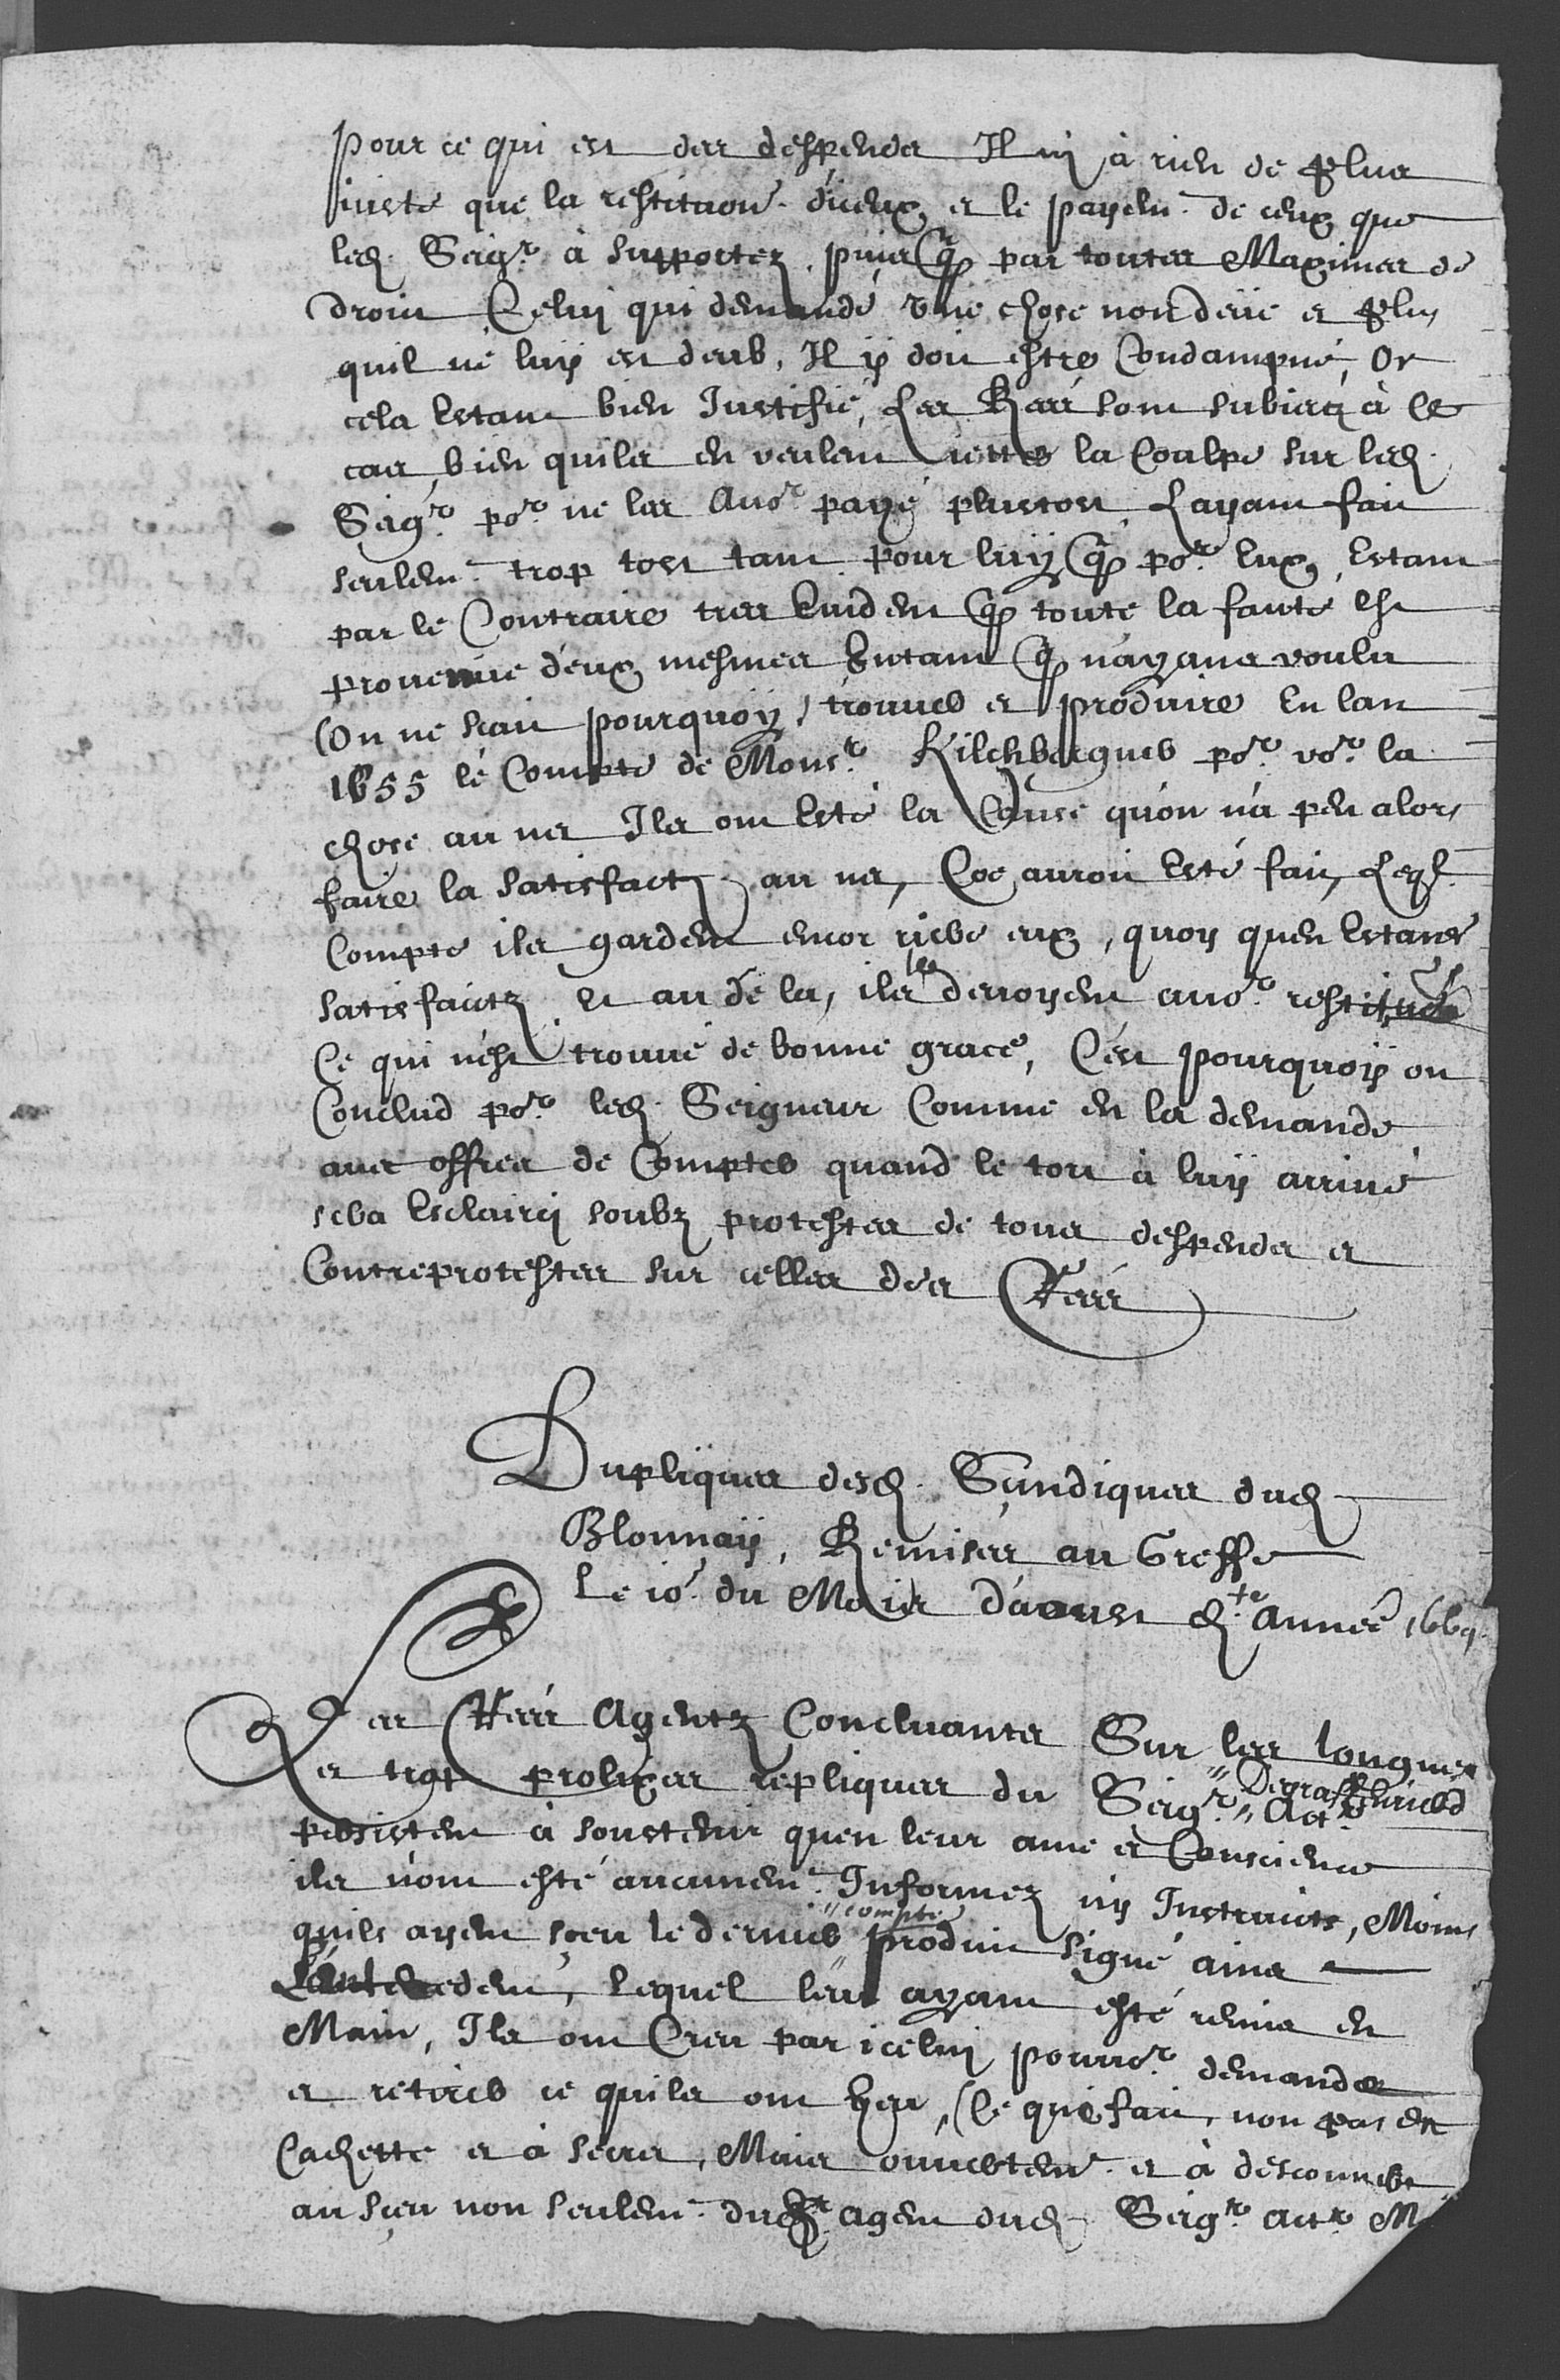 Pour ce qui est des despends Il ni à rien de plus
juste que la restituon. diceux, et le payem. de ceux que
led. Seigr. à supportez, puis q̃ par toutes Maximes de
droict Celuj qui demande une chose non deüe et plus
quil ne luÿ est deub, Il ÿ doit estre Condampné, Or
cela Estant bien Justifié, Les Rées sont subiectz à ce
cas, bien quils en veulent jetter la Coulpe sur led.
Seigr. por. ne les Avor. payé plustost, Layant fait
seulemt. trop tost tant pour luÿ q̃ por. Eux, Estant
par le Contraire tres Evident q̃ toute la faute est
provenue d'eux mesmes Entant q̃ n'ayants voulu
(On ne scait pourquoÿ) trouver et produire En lan
1655 le Compte de Monsr. Kilchberguer por. vor. la
chose au net Ils ont Esté la Cause qu'on n'a peu alors
faire la satisfact. au net, Coe auroit Esté fait, Leql.
Compte ils gardent encor riere eux, quoy quen Estants
satisfaictz et au de la, ils le devoyent avor. restitué
Ce qui n'est trouvé de bonne grace, C'est pourquoÿ on
Conclud por. led. Seigneur Comme en la demande
avec offres de Compter quand le tort à luÿ arrivé
sera Esclaircj soubz protestes de tous despends et
Contreprotestes sur celles des Rées

Dupliques desd. Sÿndiques dud.
Blonnaÿ, Remises au Greffe
Le 10e. du Mois d'aoust d.te année 1669.
Les Rées Agentz Concluants Sur les longues
et trop prolixes repliques du Seigr. Degraffenried Actr.
persistent à soustenir quen leur ame et Conscience
ils n'ont esté aucunemt. Informez nÿ Instruicts, Moins
quils ayent sceu le dernier compte produit signé ains
L'antecedent, lequel leur ayant esté remis en
Main, Ils ont Creu par icelui pouvor. demander
et retirer ce quils ont heu, Ce qui fait, non pas en
Cachette et à secret, Mais ouvertemt. et à descouvert
au sceu non seulemt. dud. Sr. agent dud. Seigr. actr. M